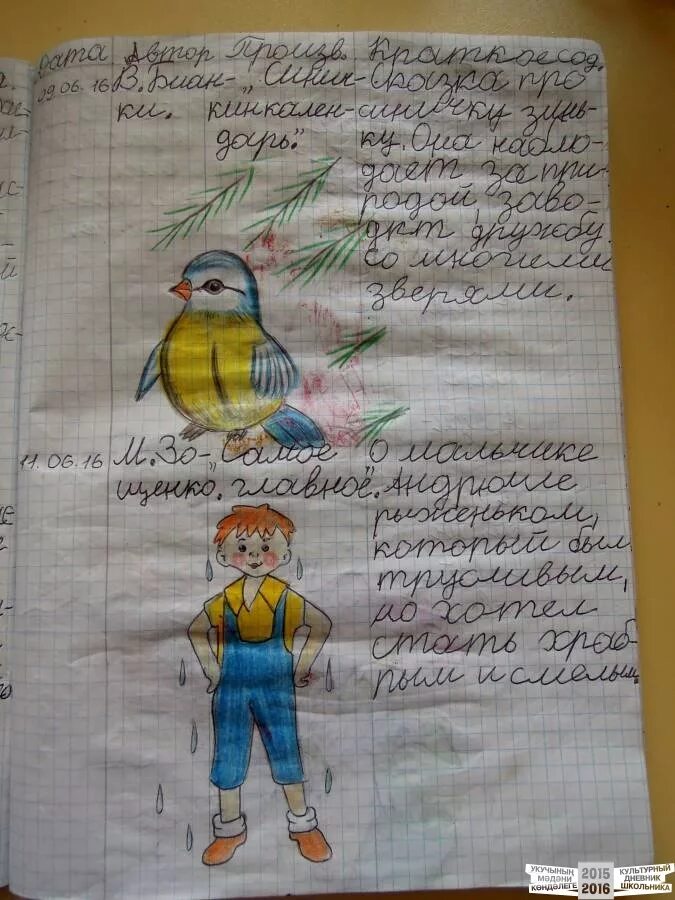 Дата Автор Произв. Краткое сод.
29.06.16 В. Биан- „Синич- Сказка про
ки. кинкален- синичку зинь-
дарь." ку. Она наблю-
дает за при-
родой, заво-
дит дружбу
со многими
зверями.
11.06.16 М. Зо- „Самое о мальчике
щенко. главное". Андрюше
рыженьком,
который был
трусливым,
но хотел
стать храб-
рым и смелым.
УКУЧЫНЫҢ
МӘДӘНИ
КӨНДӘЛЕГЕ
2015
2016
КУЛЬТУРНЫЙ
ДНЕВНИК
ШКОЛЬНИКА